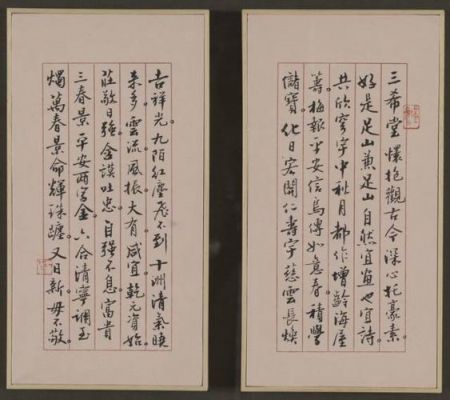 三希堂懷抱觀古今深心托豪素
好是足山兼足山自然宜畫也宜詩
共欣寰宇中秋月都作增齡海屋
籌梅報平安信鳥傳如意春積學
儲寶化日宏開仁壽宇慈雲長煥
吉祥光九陌紅塵飛不到十洲清氣曉
來多雲流風振大有咸宜乾元資始
莊敬日強金謨吐忠自強不息富貴
三春景平安兩字金六合清寧調玉
燭萬春景命輝珠躔又日新毋不敬